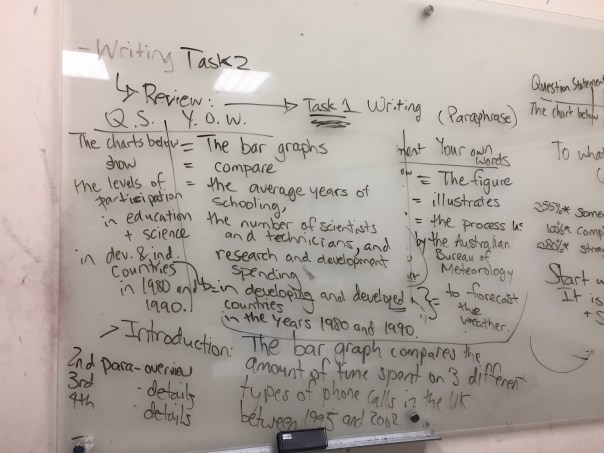 - Writing Task 2
↳ Review: → Task 1 Writing (Paraphrase)
Q.S. Y.O.W.
The charts below = The bar graphs
show = compare
the levels of = the average years of
participation schooling,
in education the number of scientists
+ science and technicians, and
in dev. & ind. research and development
countries spending
in 1980 and = in developing and developed
1990. countries
in the years 1980 and 1990.
ment Your own
words
ow = The figure
= illustrates
= the process us
by the Australian
Bureau of
Meteorology
= to forecast
the
weather.
> Introduction: The bar graph compares the
2nd para-overview amount of time spent on 3 different
3rd - details types of phone calls in the UK
4th - details between 1995 and 2002.
Question Statement
The chart below
To what
≥55%* some
100%* comp
≥80%* stro
Start w
It is
+ S